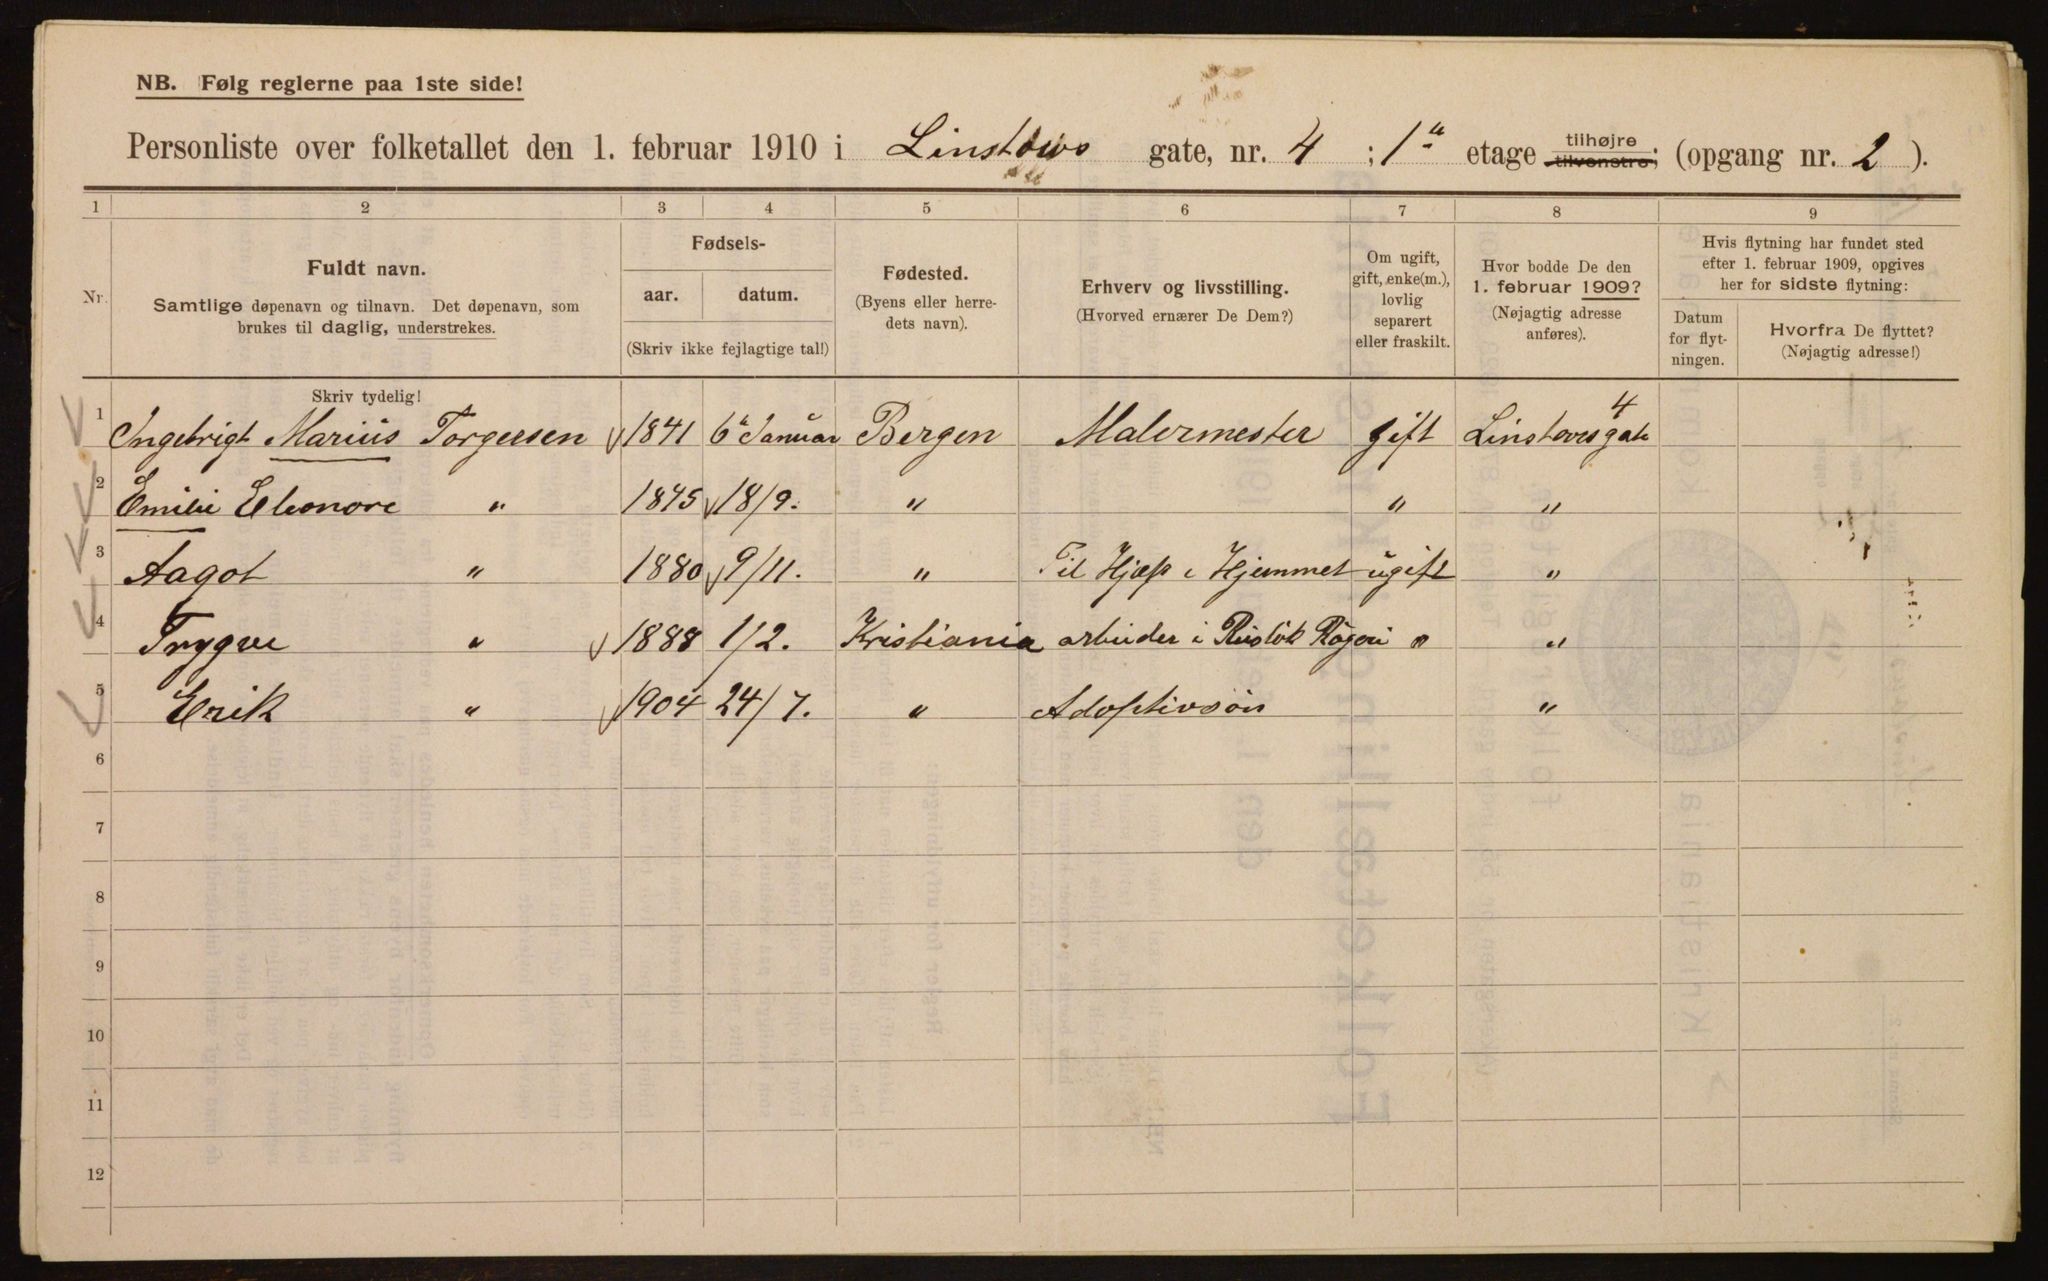 NB. Følg reglerne paa 1ste side!
Personliste over folketallet den 1. februar 1910 i Linstows gate, nr. 4 ; 1ᵃ etage tilhøjre tilvenstre; (opgang nr. 2 ).
1 2 3 4 5 6 7 8 9
Nr.
Fuldt navn.
Samtlige døpenavn og tilnavn. Det døpenavn, som
brukes til daglig, understrekes.
Fødsels-
aar. datum.
(Skriv ikke fejlagtige tal!)
Fødested.
(Byens eller herre-
dets navn).
Erhverv og livsstilling.
(Hvorved ernærer De Dem?)
Om ugift,
gift, enke(m.),
lovlig
separert
eller fraskilt.
Hvor bodde De den
1. februar 1909?
(Nøjagtig adresse
anføres).
Hvis flytning har fundet sted
efter 1. februar 1909, opgives
her for sidste flytning:
Datum
for flyt-
ningen.
Hvorfra De flyttet?
(Nøjagtig adresse!)
Skriv tydelig!
1 Ingebrigt Marius Torgersen 1841 6ᵗ Januar Bergen Malermester gift Linstowsgate 4
2 Emilie Eleonore " 1845 18/9. " " "
3 Aagot " 1880 9/11. " Til Hjælp i Hjemmet ugift "
4 Trygve " 1888 1/2. Kristiania arbeider i Rusløk Røgeri " "
5 Erik " 1904 24/7. " Adoptivsøn "
6
7
8
9
10
11
12